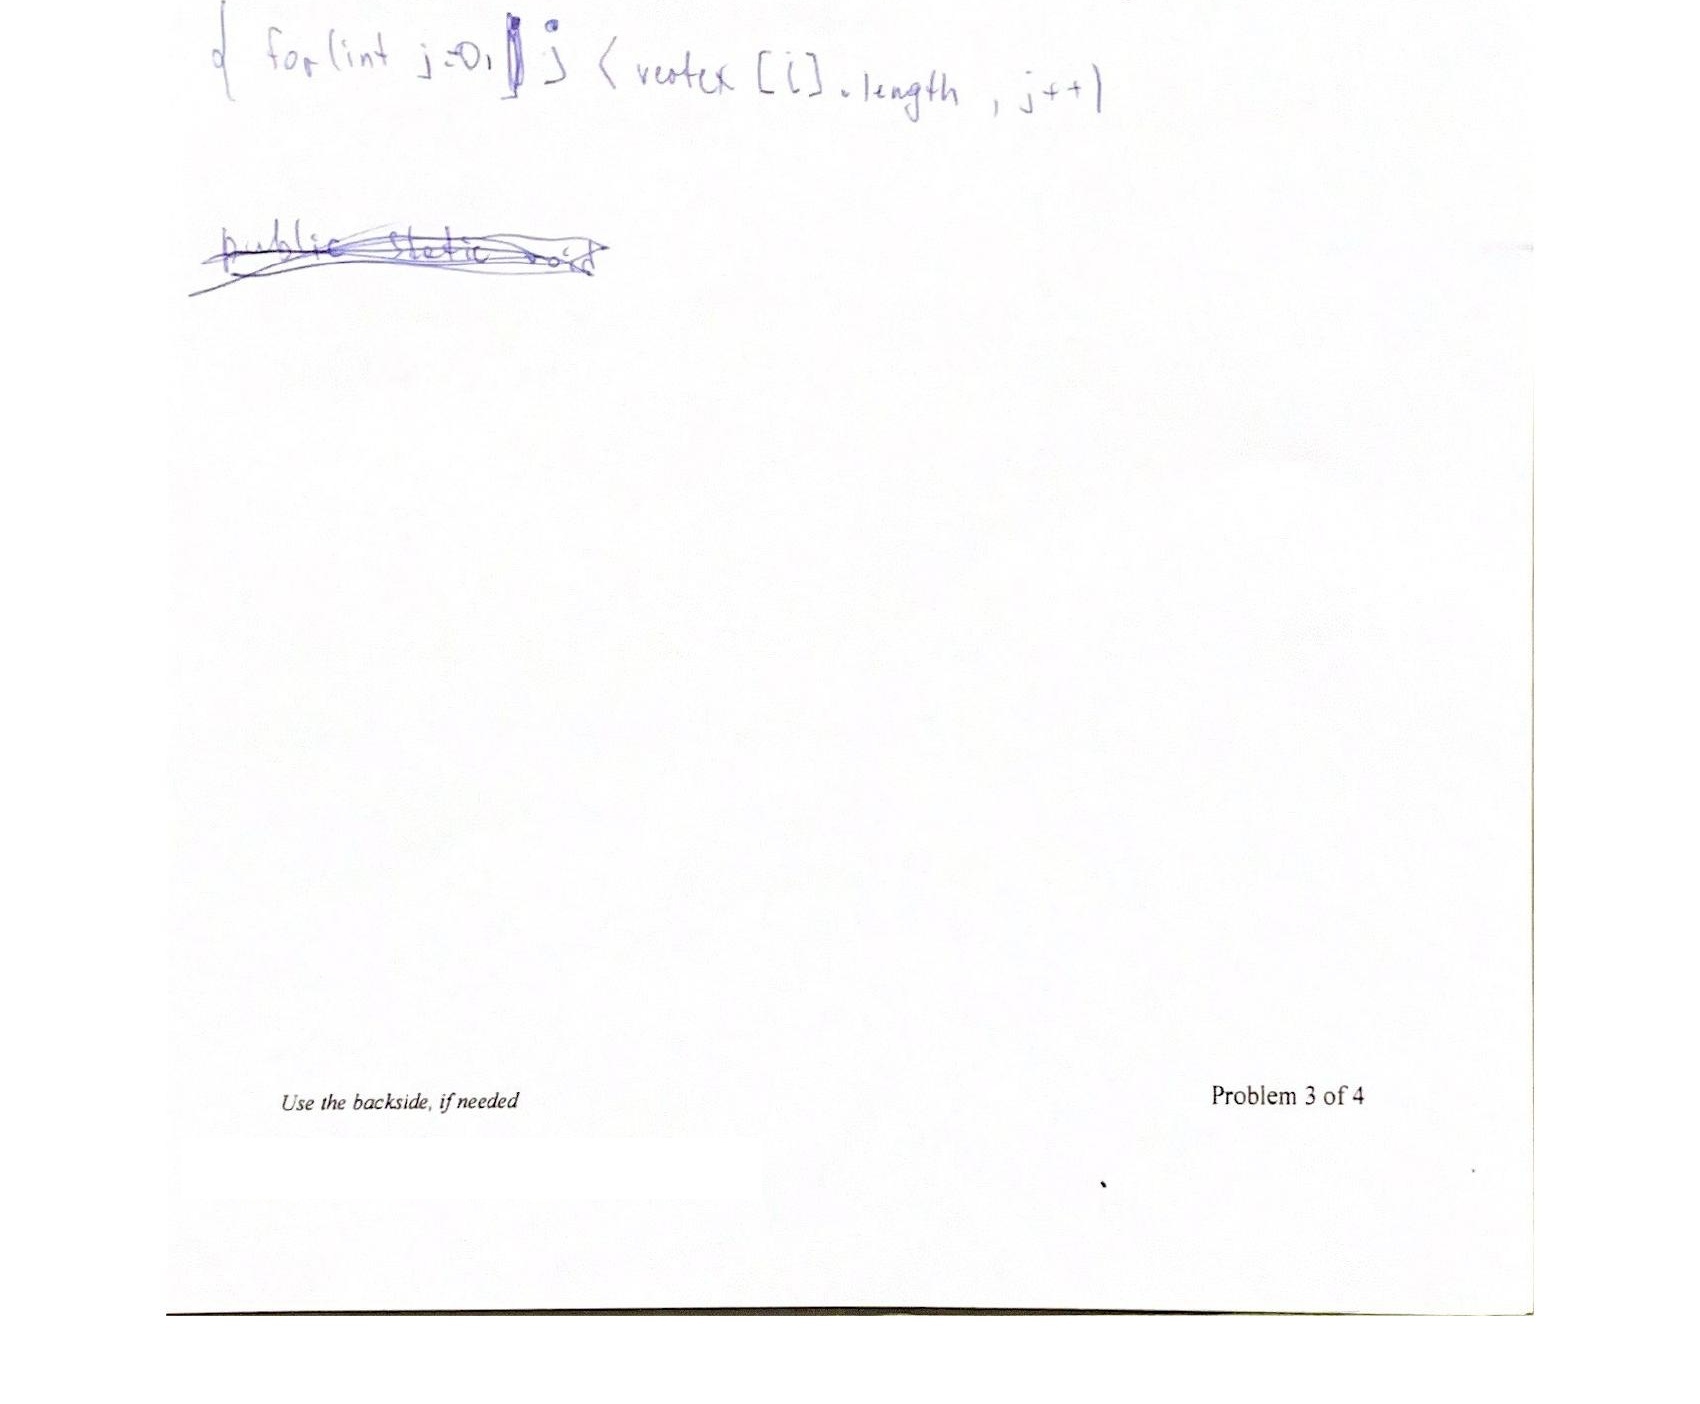 { for(int j=0, j < vertex [i].length , j++)
public static void
Use the backside, if needed
Problem 3 of 4